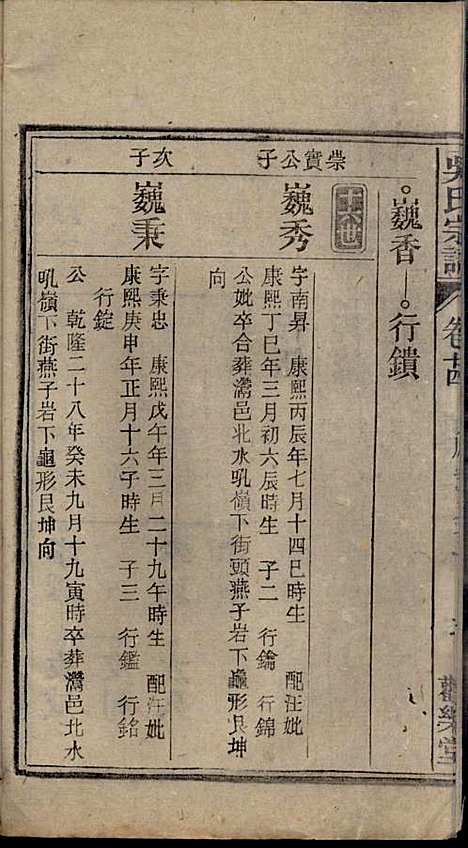 吳氏宗譜 卷十四
觀樂堂
巍香 行鐀
十六世
崇實公子
巍秀
字南昇 康熙丙辰年七月十四巳時生 配汪妣
康熙丁巳年三月初六辰時生 子二 行鑰 行錦
公妣卒合葬灊邑北水吼嶺下街頭燕子岩下龜形艮坤
向
次子
巍秉
字秉忠 康熙戊午年三月二十九午時生 配汪妣
康熙庚申年正月十六子時生 子三 行鑑 行銘
行錠
公 乾隆二十八年癸未九月十九寅時卒葬灊邑北水
吼嶺下街燕子岩下龜形艮坤向